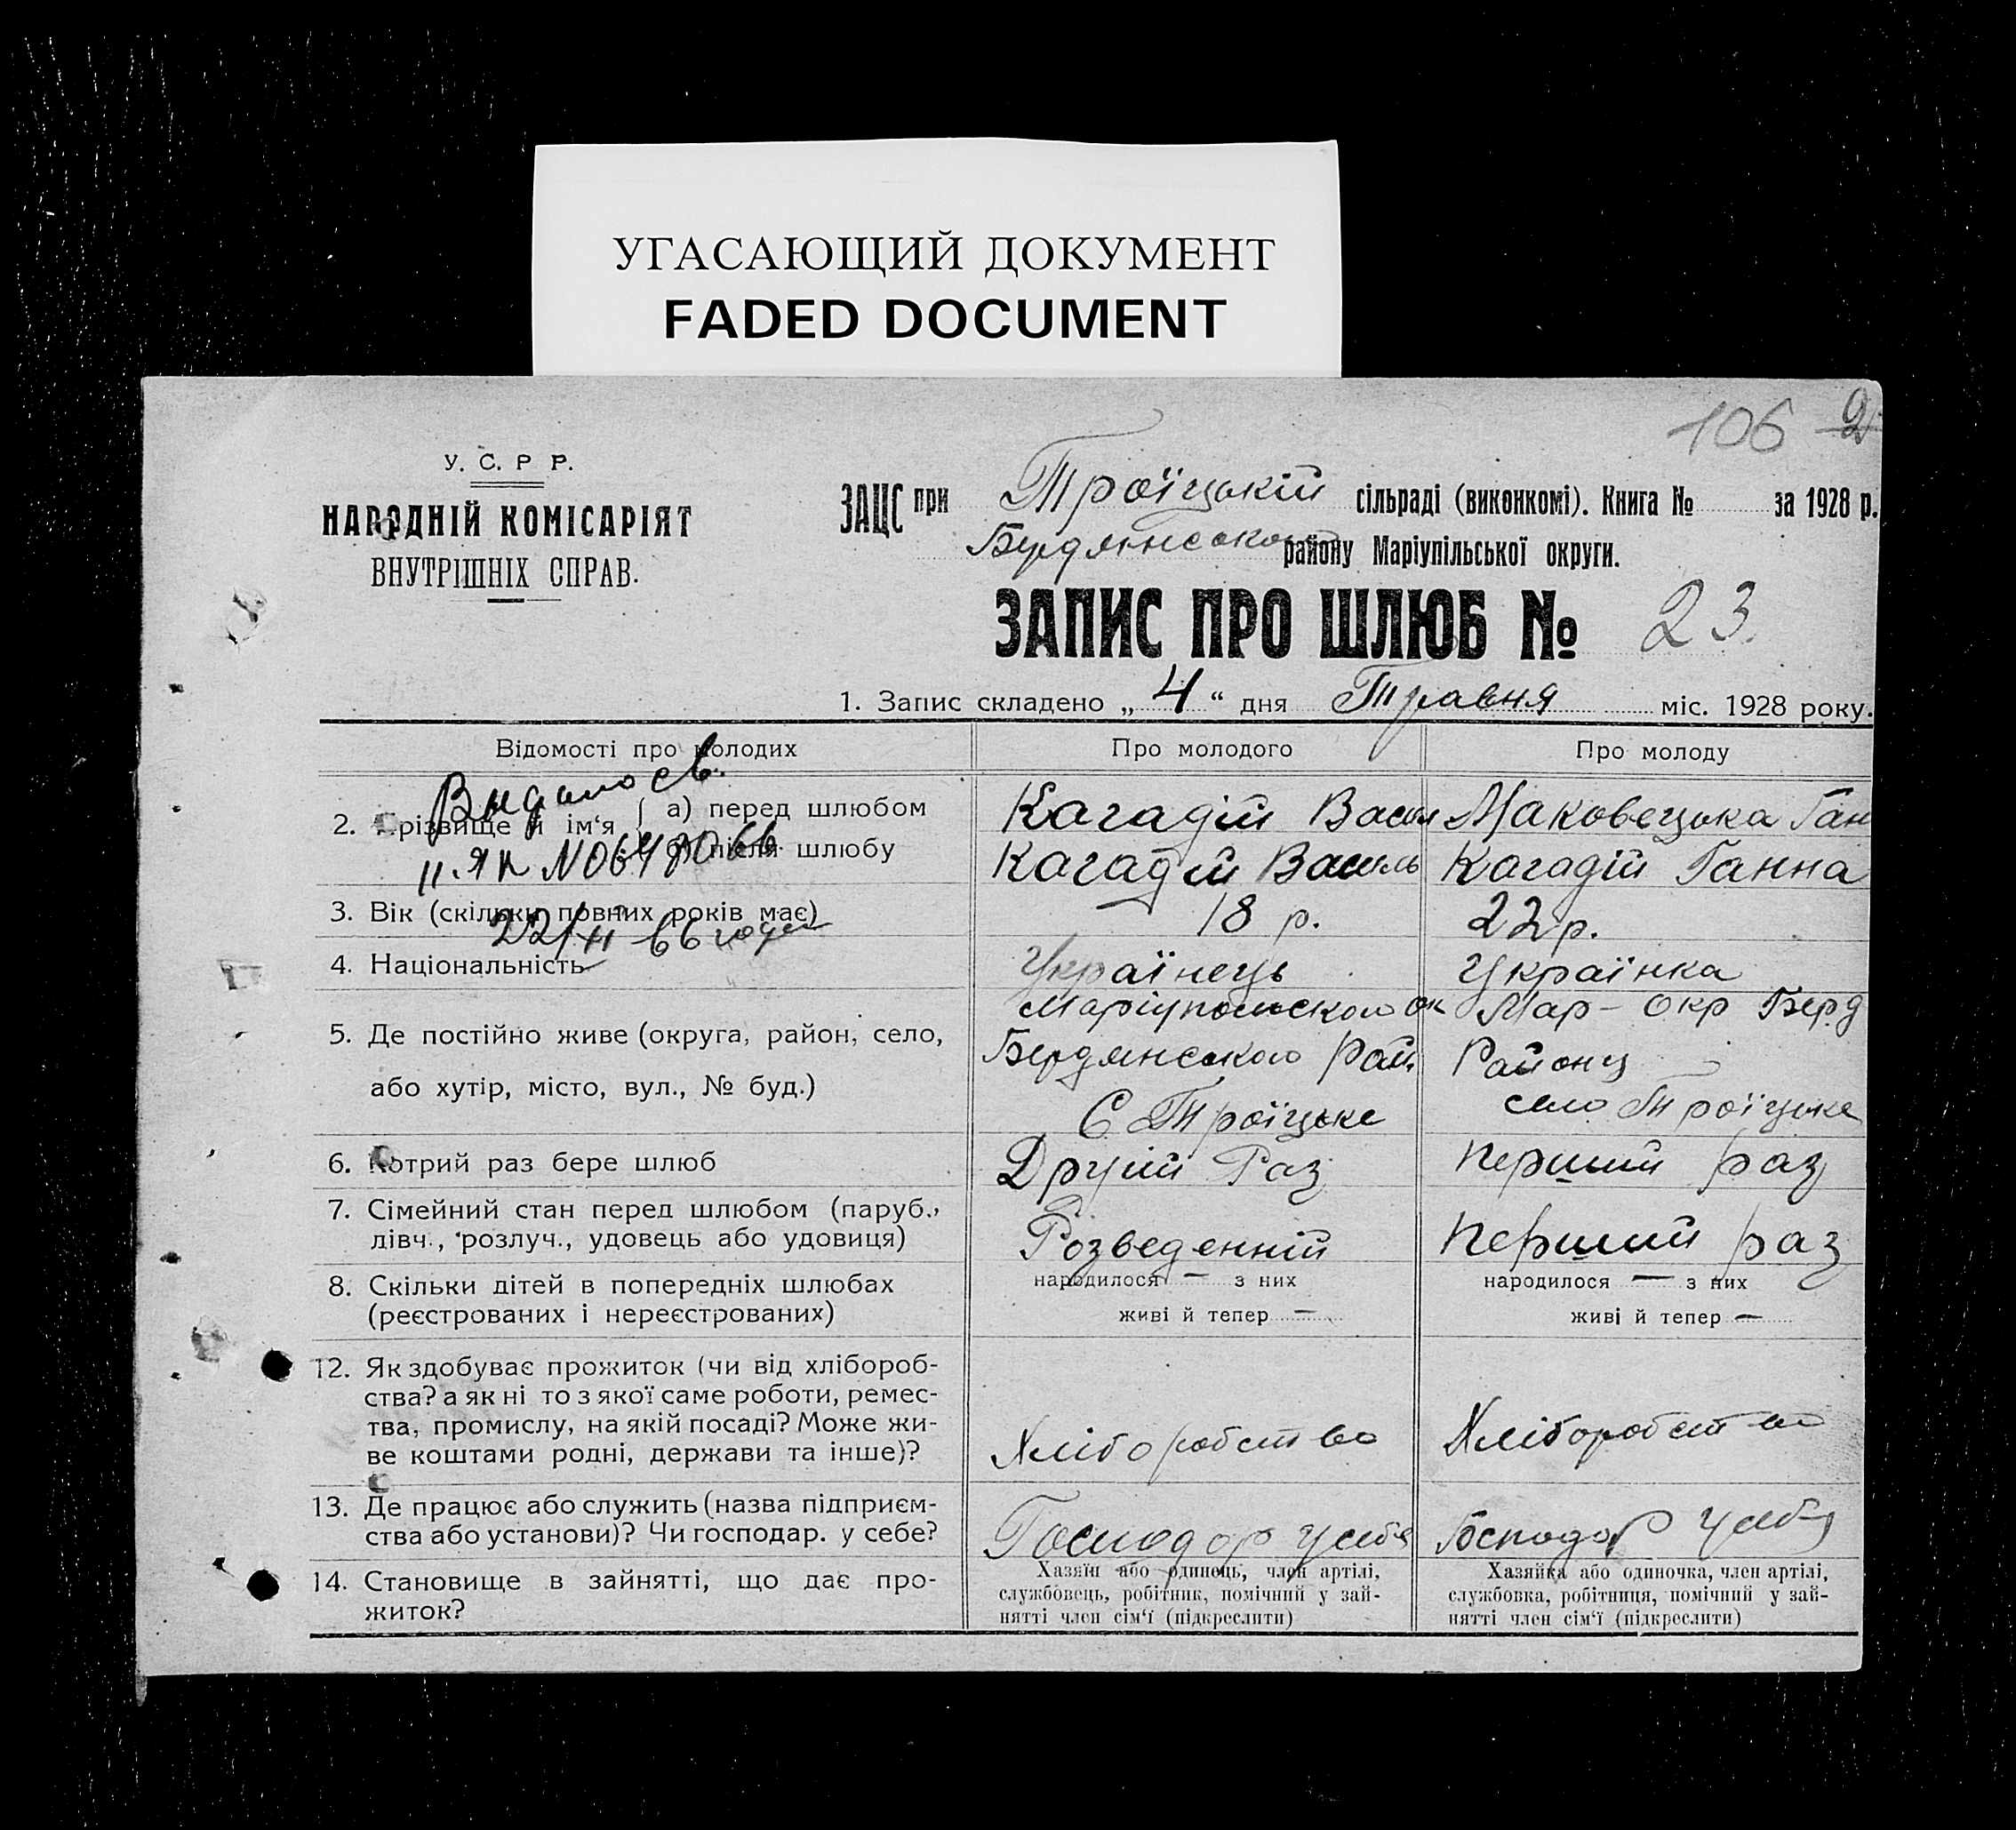 УГАСАЮЩИЙ ДОКУМЕНТ
FADED DOCUMENT
106 2
У. С. Р Р.
НАРОДНІЙ КОМІСАРІЯТ
ВНУТРІШНІХ СПРАВ.
ЗАЦС при Троїцькій сільраді (виконкомі). Книга № за 1928 р.
Бердянського району Маріупільської округи.
ЗАПИС ПРО ШЛЮБ № 23.
1. Запис складено „ 4 “ дня Травня міс. 1928 року.
Відомості про молодих
Про молодого
Про молоду
Видано св.
II. ЯП № 064
22/II 66 года
2. Прізвище й ім‘я
а) перед шлюбом
Кагадій Васил
Маковецька Ган
б) після шлюбу
Кагадій Василь
Кагадій Ганна
3. Вік (скільки повних років має)
18 р.
22 р.
4. Національність
Українець
Українка
5. Де постійно живе (округа, район, село,
або хутір, місто, вул., № буд.)
Маріупольского ок
Бердянського Рай
С Троїцьке
Мар - окр Берд
Району
село Троїцьке
6. Котрий раз бере шлюб
Другий Раз
перший раз
7. Сімейний стан перед шлюбом (паруб.,
дівч., розлуч., удовець або удовиця)
Розведенний
перший раз
8. Скільки дітей в попередніх шлюбах
(реєстрованих і нереєстрованих)
народилося — з них
живі й тепер —
народилося — з них
живі й тепер —
12. Як здобуває прожиток (чи від хлібороб-
ства? а як ні то з якої саме роботи, ремес-
тва, промислу, на якій посаді? Може жи-
ве коштами родні, держави та інше)?
Хліборобство
Хліборобство
13. Де працює або служить (назва підприєм-
ства або установи)? Чи господар. у себе?
Господар у себе
Господар у себе
14. Становище в зайнятті, що дає про-
житок?
Хазяїн або одинець, член артілі,
службовець, робітник, помічний у зай-
нятті член сім‘ї (підкреслити)
Хазяйка або одиночка, член артілі,
службовка, робітниця, помічний у зай-
нятті член сім‘ї (підкреслити)